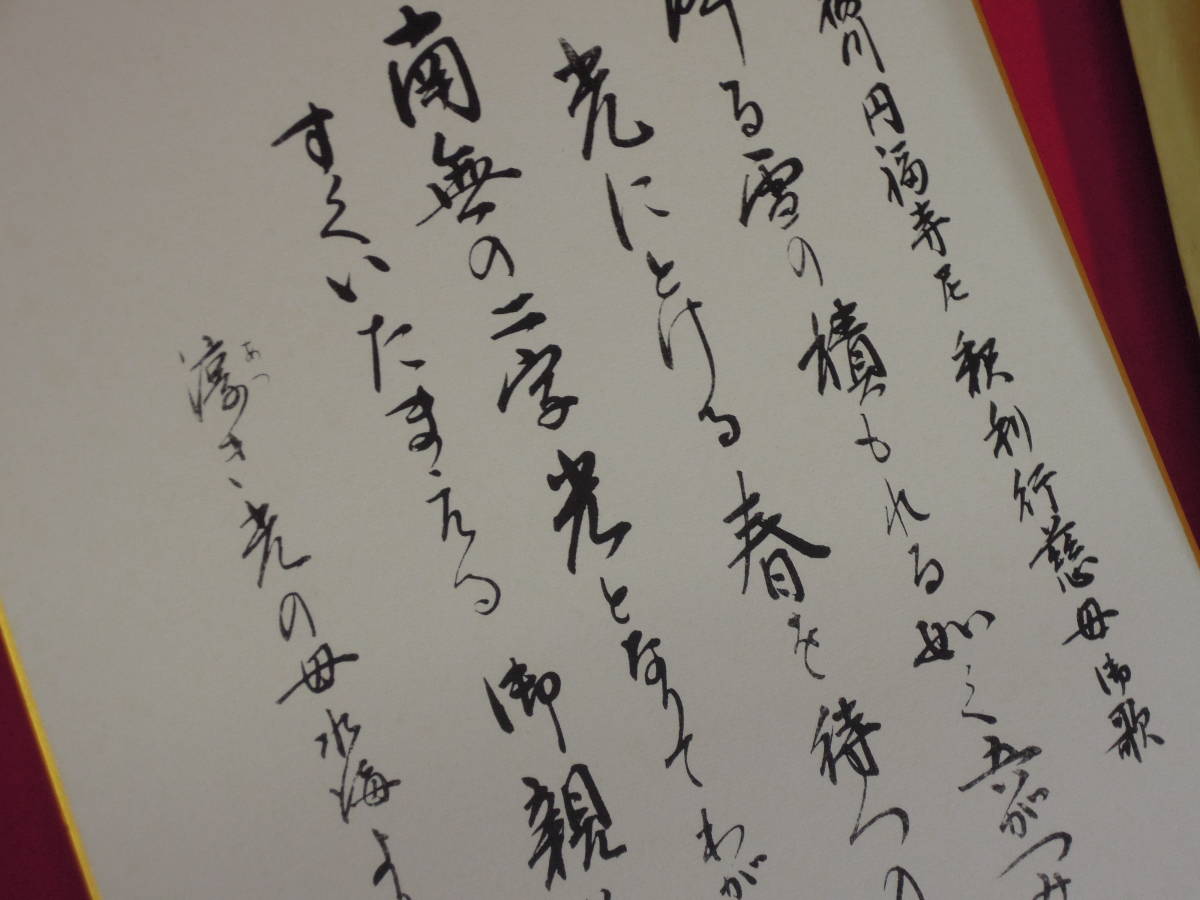 川円福寺尼 釈利行慈母御歌
降る雪の積もれる如く吾がつみ
光にとける春を待つの
南無の二字光となりてわが
すくいたまえる 御親
淳き光の母 水海よ
あつ